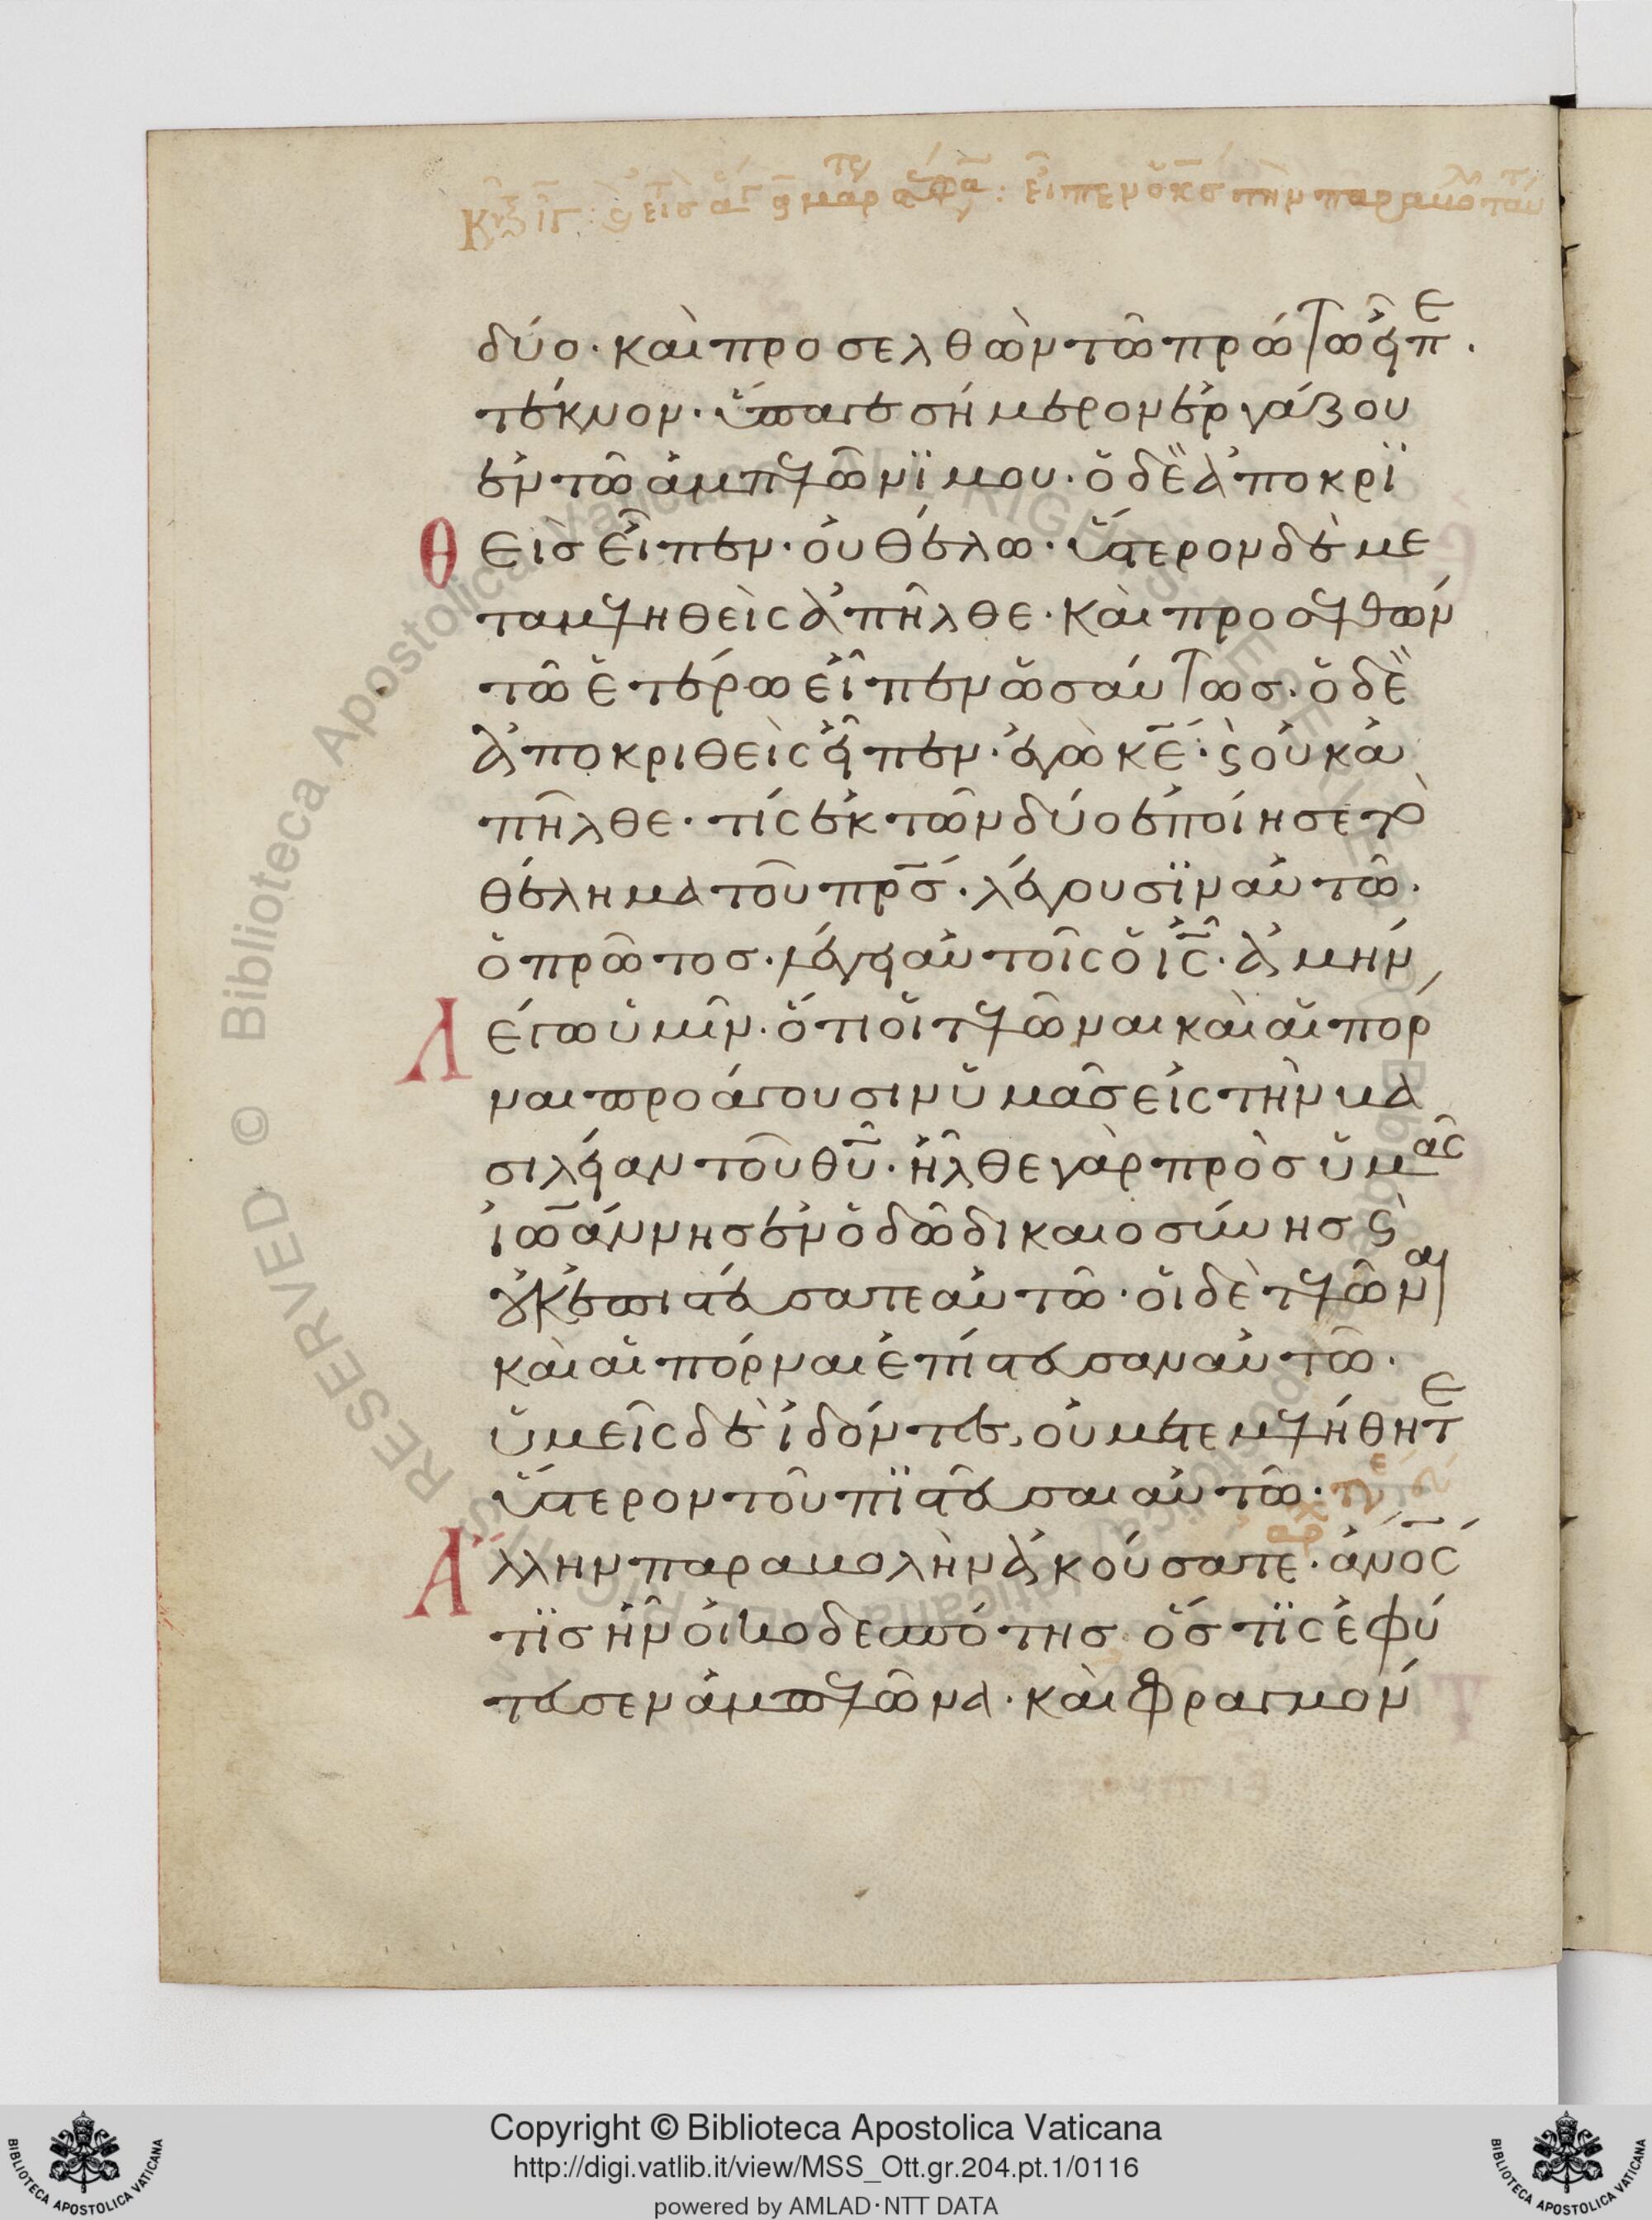 δύο· καὶ προσελθὼν τῶ πρώτω εἶπε·
τέκνον· ὕπαγε σήμερον ἐργάζου
ἐν τῶ ἀμπελῶνϊ μου· ὁ δὲ ἀποκρϊ
θεὶς εἶπεν· οὐ θέλω· ὕστερον δὲ με
ταμεληθεὶς ἀπῆλθε· καὶ προσελθών
τῶ ἑτέρω εἶπεν ὡσαύτως· ὁ δὲ
ἀποκριθεὶς εἶπεν· ἐγὼ κε̄· ϛ οὐκ ἀ
πῆλθε· τίς ἐκ τῶν δύο ἐποίησε τὸ
θέλημα τοῦ πρ̄ς· λέγουσϊν αὐτῶ·
ὁ πρῶτος· λέγει αὐτοῖς ὁ ἰς̄· ἀμήν,
λέγω ὑμῖν· ὅτι οἱ τελῶναι καὶ αἱ πόρ
ναι προάγουσιν ὑμᾶς εἰς τὴν βα
σιλείαν τοῦ θῡ· ἦλθε γὰρ πρὸς ὑμᾶς
ἰωάννης ἐν ὁδῶ δικαιοσύνης ϛ
οὐκ ἐπιστεύσατε αὐτῶ· οἱ δὲ τελῶναι
καὶ αἱ πόρναι ἐπίστευσαν αὐτῶ·
ὑμεῖς δὲ ἰδόντες, οὐ μετεμελήθητε
ὕστερον τοῦ πϊστεῦσαι αὐτῶ·
ἄλλην παραβολὴν ἀκούσατε· ἄν̄ος
τϊς ἦν οἰκοδεσπότης ὅς τϊς ἐφύ
τευσεν ἀμπελῶνα· καὶ φραγμόν
Copyright © Biblioteca Apostolica Vaticana
http://digi.vatlib.it/view/MSS_Ott.gr.204.pt.1/0116
powered by AMLAD·NTT DATA